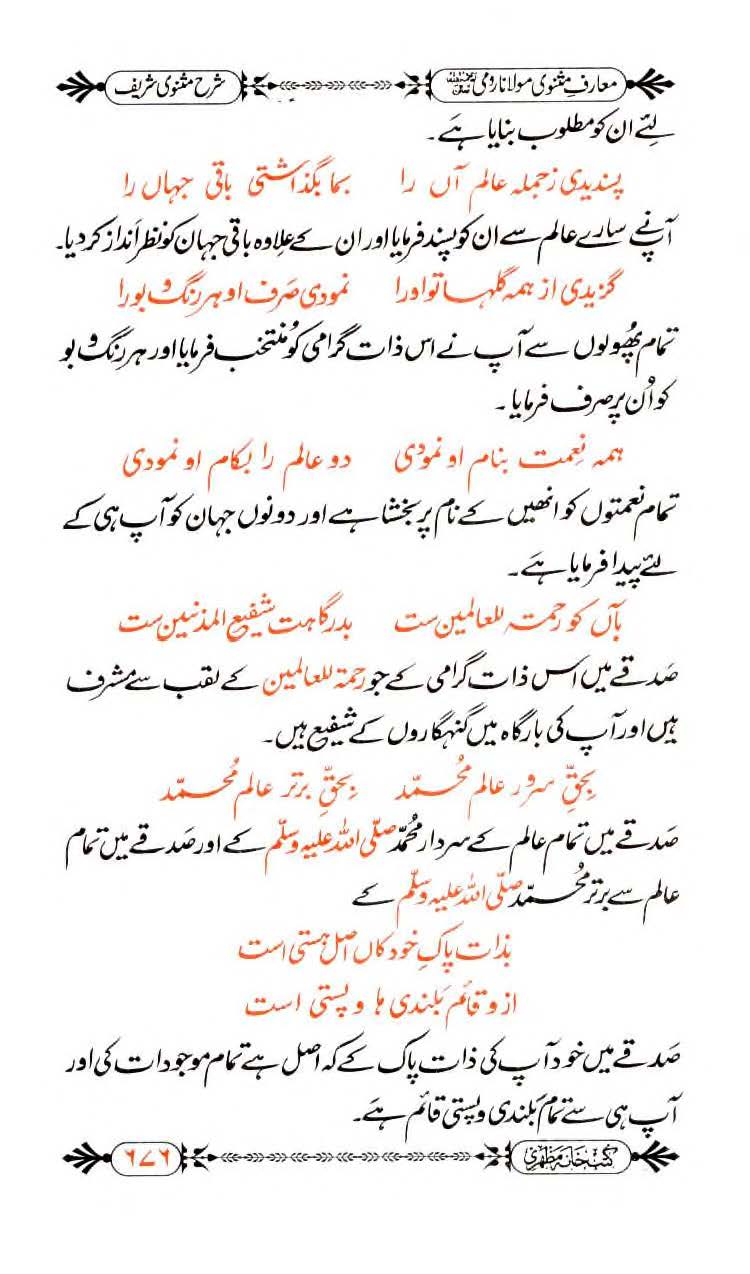 معارفِ مثنوی مولانا رومی
شرح مثنوی شریف
لئے ان کو مطلوب بنایا ہے۔
پسندیدی ز جملہ عالم آں را بما بگذاشتی باقی جہاں را
آپ نے سارے عالم سے ان کو پسند فرمایا اور ان کے علاوہ باقی جہان کو نظر انداز کر دیا۔
گزیدی از ہمہ گلہا تو اورا نمودی صَرف او ہر رنگ و بو را
تمام پھولوں سے آپ نے اس ذات گرامی کو مُنتخب فرمایا اور ہر رنگ و بو
کو اُن پر صرف فرمایا ۔
ہمہ نِعمت بنام او نمودی دو عالم را بکام او نمودی
تمام نعمتوں کو انھیں کے نام پر بخشا ہے اور دونوں جہان کو آپ ہی کے
لئے پیدا فرمایا ہے۔
بآں کو رحمتہ للعالمین ست بدرگاہت شفیع المذنبین ست
صَدقے میں اس ذات گرامی کے جو رحمۃ للعالمین کے لقب سے مشرف
ہیں اور آپ کی بارگاہ میں گنہگاروں کے شفیع ہیں۔
بحقِّ سرور عالم مُحمّد بحقِّ برتر عالم مُحمّد
صَدقے میں تمام عالم کے سردار مُحمّد صلّی اللہ علیہ وسلّم کے اور صَدقے میں تمام
عالم سے برتر مُحمّد صلّی اللہ علیہ وسلّم کے
بذات پاکِ خود کاں اصل ہستی است
ازو قائم بَلندی ہا و پستی است
صَدقے میں خود آپ کی ذات پاک کے کہ اصل ہے تمام موجودات کی اور
آپ ہی سے تمام بَلندی و پستی قائم ہے۔
کتب خانہ مظہری
۶۷۶